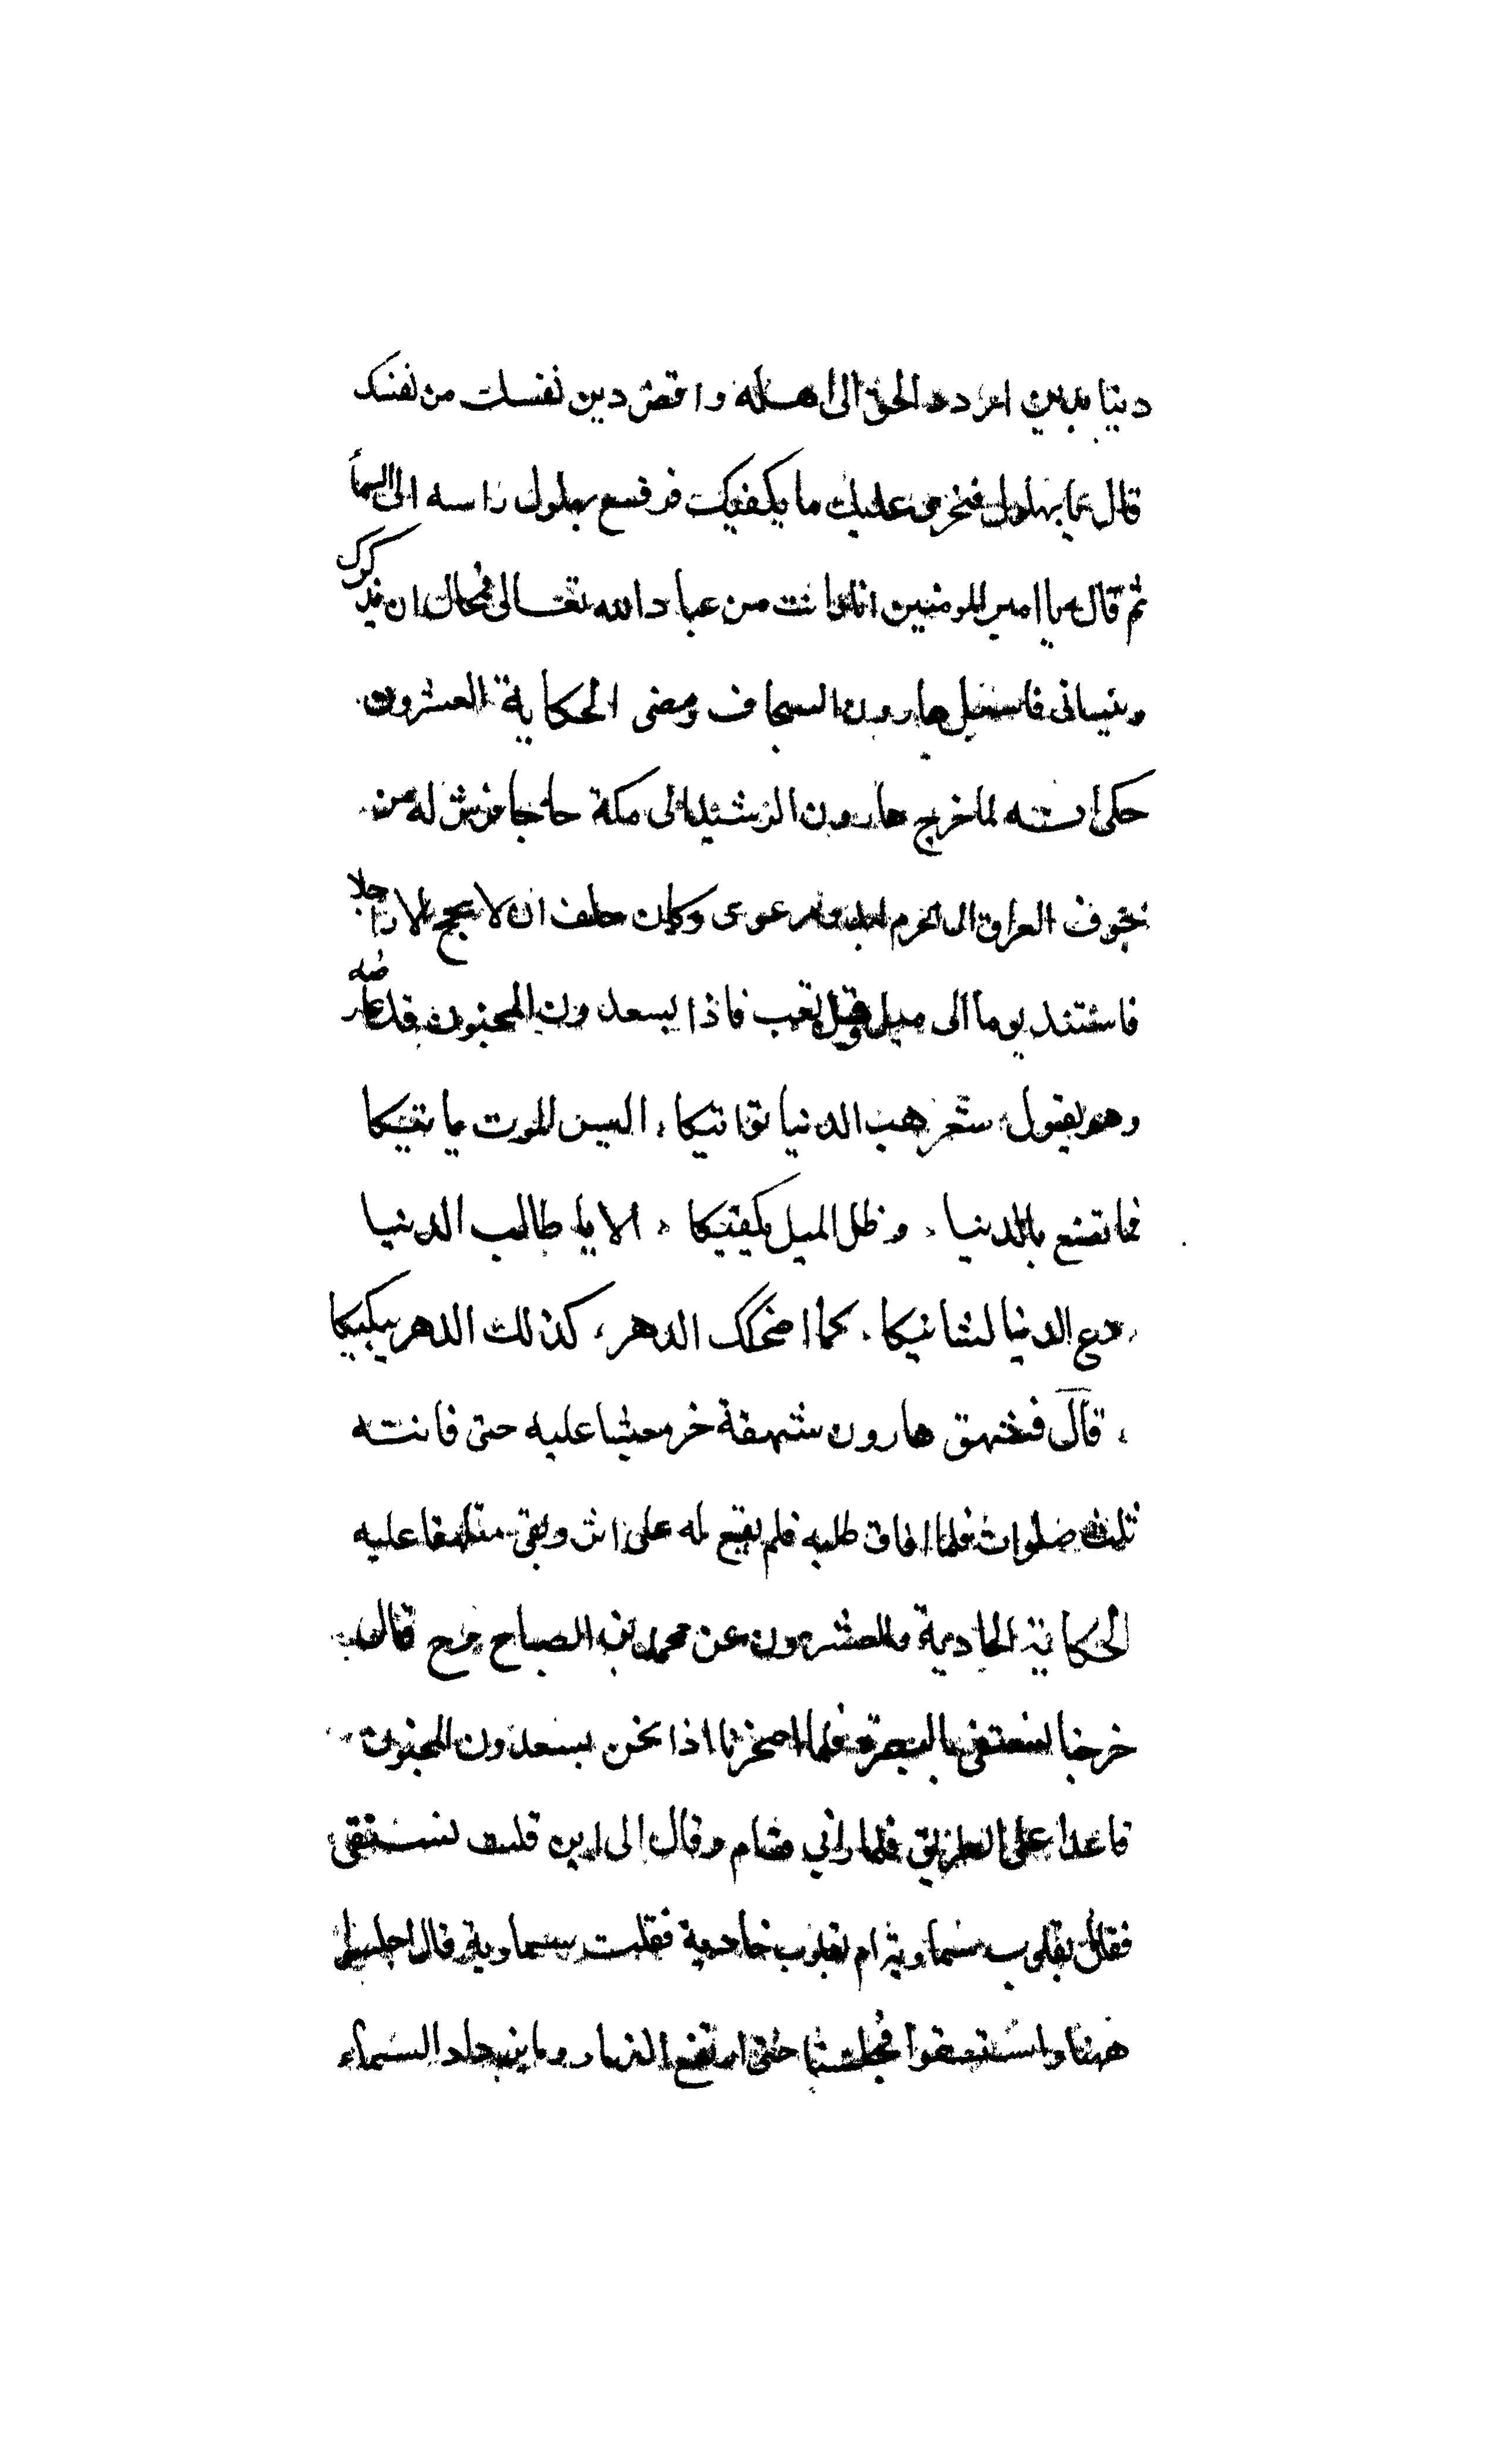 دينا بدين اردد الحق الى اهله واقض دين نفسك من نفسك
قال يا بهلول فنجرى عليك ما يكفيك فرفع بهلول راسه الى السمأ
ثم قال يا امير المومنين انا وانت من عباد الله تعالى فمحال ان يذكرك
وينسانى فاسبل هارون السجاف ومضى الحكاية العشرون
حكى انه لما خرج هارون الرشيد الى مكة حاجا فرش له من
جوف العراق الى الحرم لبد مرعزى وكان حلف ان لا يحج الا راجلا
فاستند يوما الى ميل وقد تعب فاذا بسعدون المجنون قد عارضه
وهو يقول شعر هب الدنيا تواتيكا، اليس الموت ياتيكا
فما تصنع بالدنيا، وظل الميل يكفيكا، الا يا طالب الدنيا
دع الدنيا لشانيكا، كما اضحكك الدهر، كذلك الدهر يبكيكا
، قال فشهق هارون شهقة خر مغشيا عليه حتى فاتته
ثلث صلوات فلما افاق طلبه فلم يقع له على اثر وبقى متلهفا عليه
الحكاية الحادية والعشرون عن محمد بن الصباح رح قال
خرجنا نستسقى بالبصرة فلما اصحرنا اذا نحن بسعدون المجنون
قاعدا على الطريق فلما رانى قام وقال الى اين قلت نستسقى
فقال بقلوب سماوية ام بقلوب خاوية فقلت سماوية قال اجلسوا
ههنا واستسقوا فجلسنا حتى ارتفع النهار وما يزداد السماء